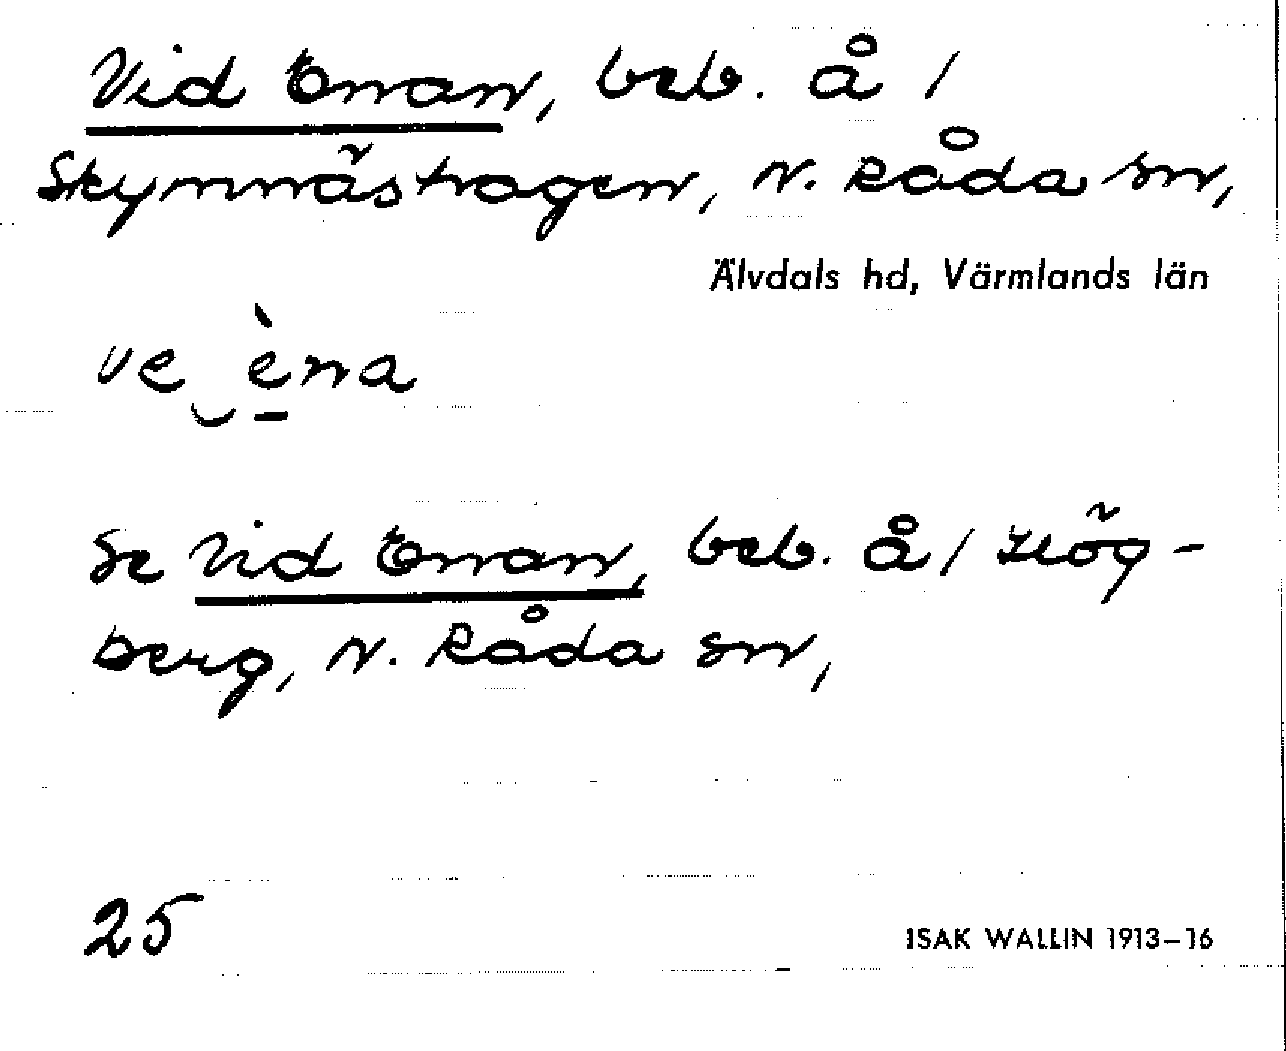 Vid Enan, beb. å /
Skymnäshagen, N. Råda sn,
Älvdals hd, Värmlands län
ve‿èna
Se Vid Enan, beb. å / Hög-
berg, N. Råda sn,
25
ISAK WALLIN 1913–16